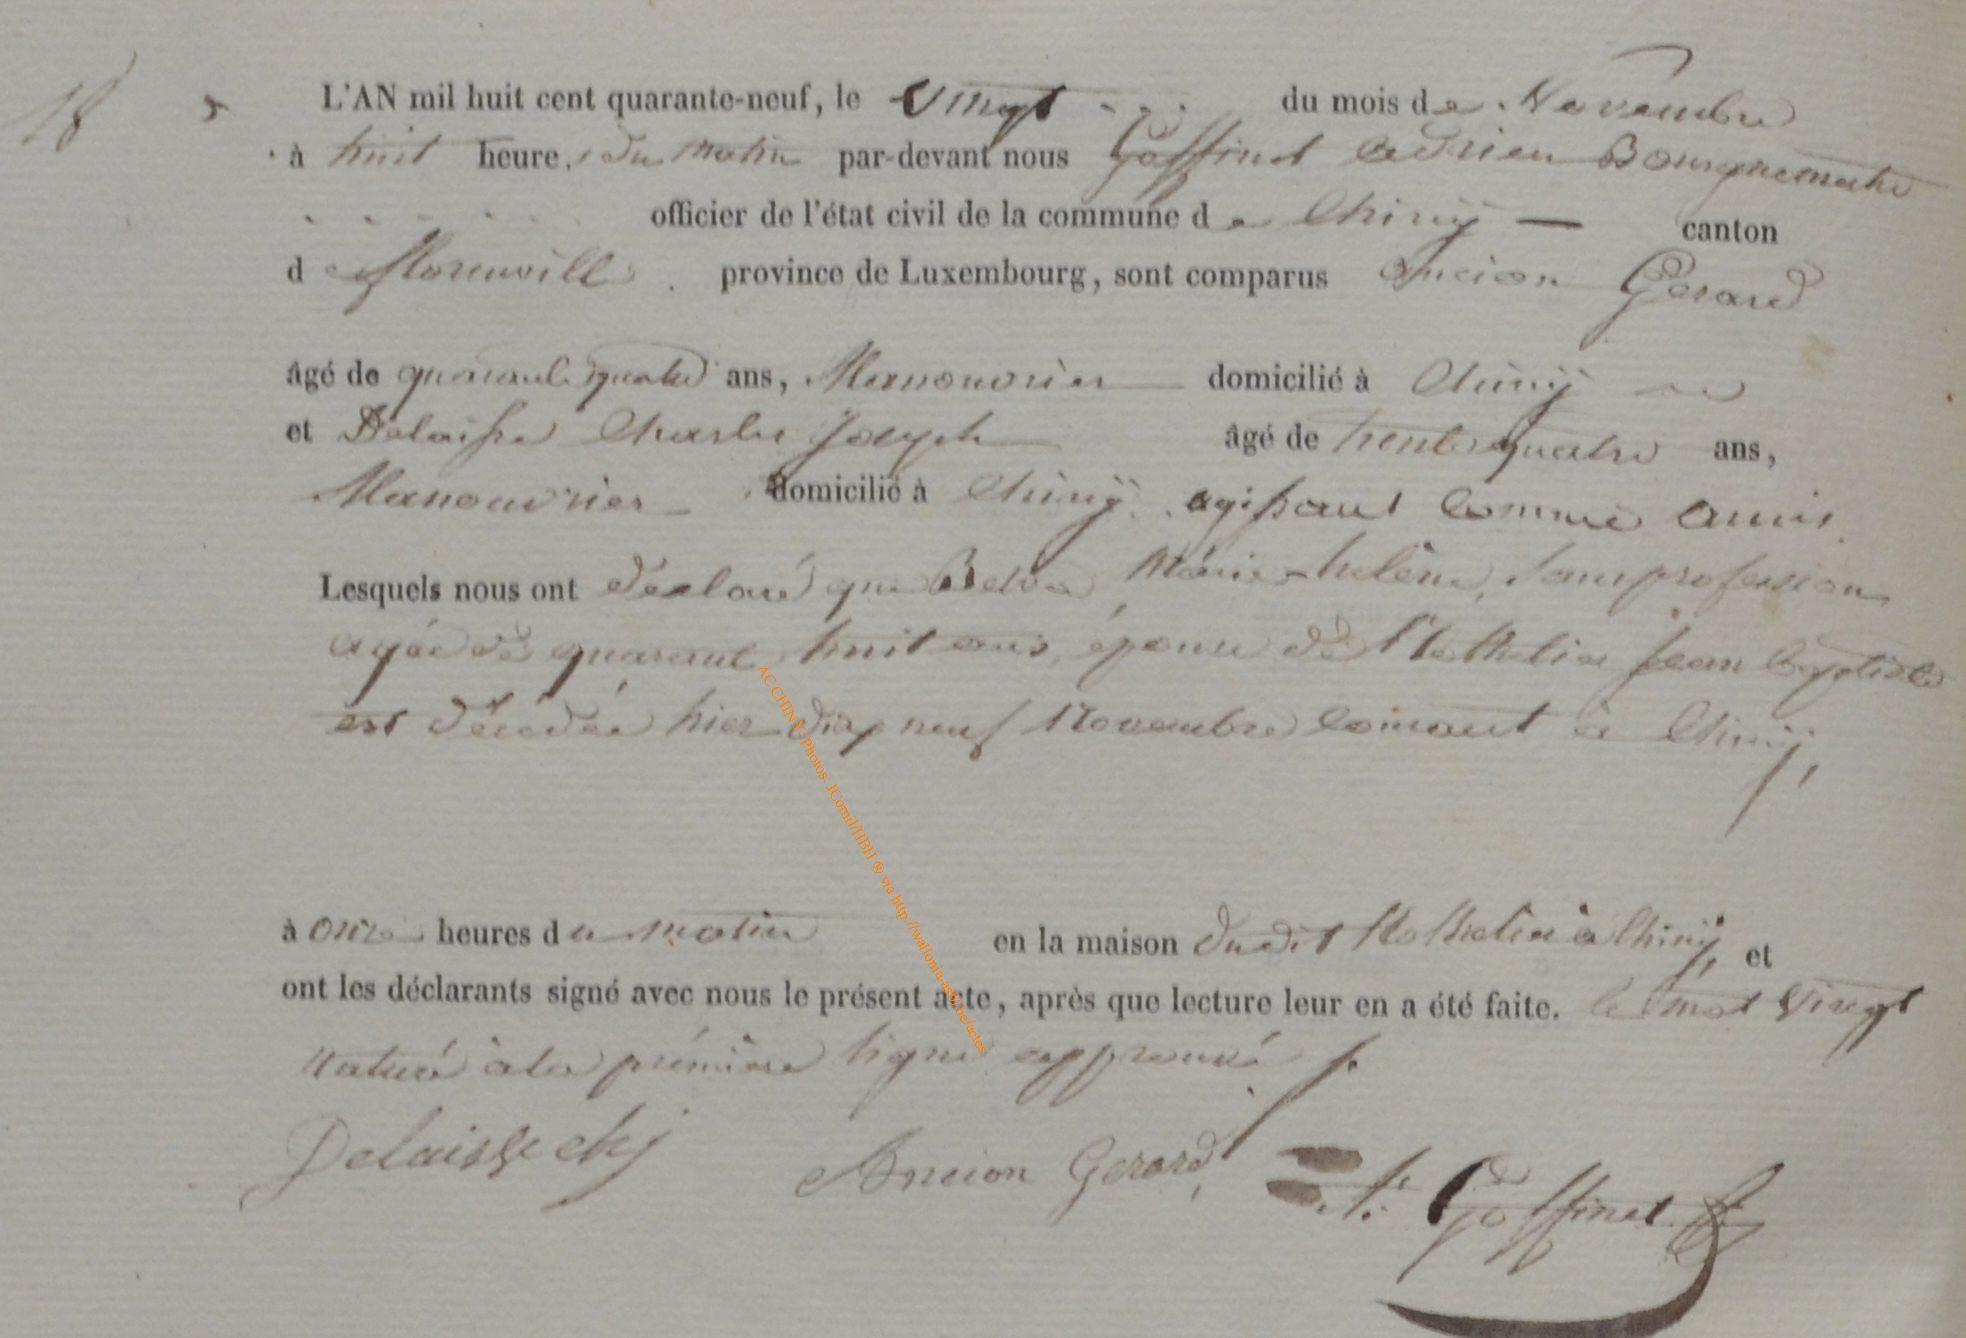 18
L'AN mil huit cent quarante-neuf, le Vingt du mois de Novembre
à huit heures du matin par-devant nous Goffinet adrien Bourgnemetre
officier de l'état civil de la commune de Chiny — canton
de florenville province de Luxembourg, sont comparus Ancion Gerard
âgé de quarante quatre ans, Manouvrier domicilié à Chiny
et Delaisse Charles Joseph âgé de trente quatre ans,
Manouvrier domicilié à Chiny agissant comme amis
Lesquels nous ont déclaré que Marie hélène, sans profession
agée de quarante huit ans, épouse de Jean baptiste
est décédée hier dix neuf Novembre courant à Chiny,
à onze heures du matin en la maison dudit à Chiny, et
ont les déclarants signé avec nous le présent acte, après que lecture leur en a été faite. le mot Vingt
à la première ligne approuvé
Delaisse chj Ancion Gerard A. Goffinet
AC CHINY - Photos JComil/IBH ® via http://wallonia-asbl.be/actes